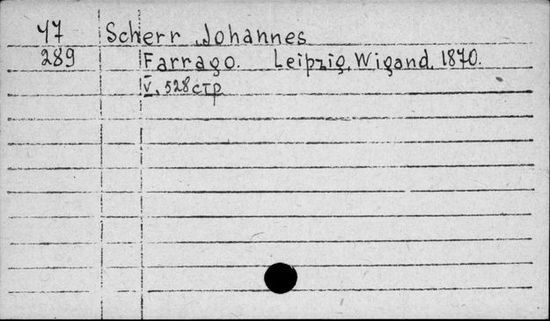 47 Scherr Johannes
289 Farrago. Leipzig, Wigand, 1870.
V, 528 стр